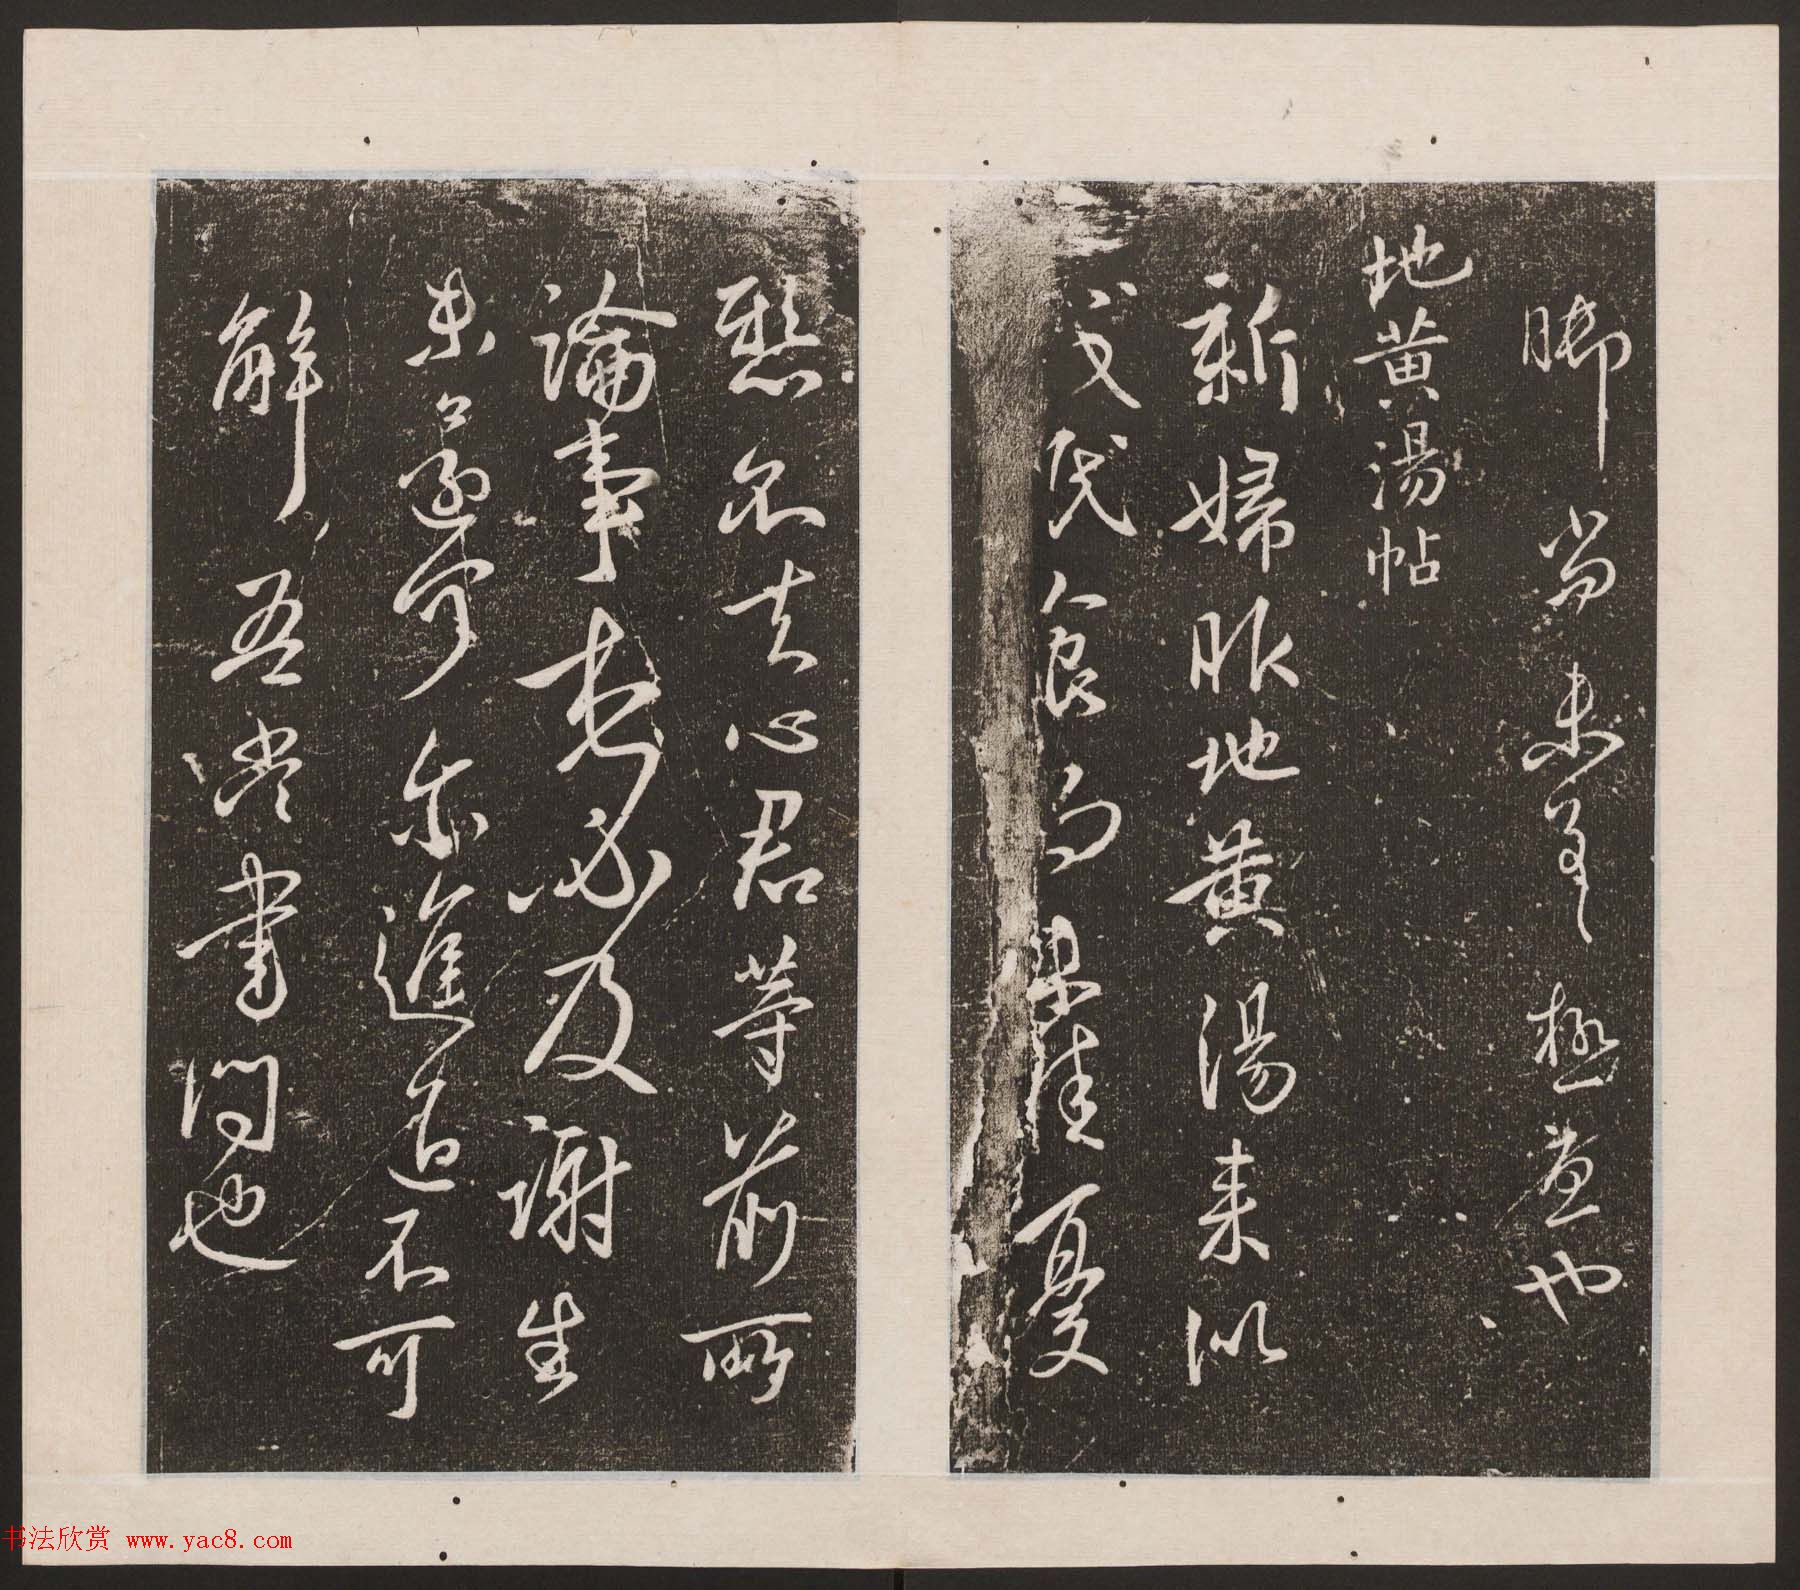 腳尚未差極憊也
地黃湯帖
新婦服地黃湯來似
減眠食尚未佳憂
懸不去心君等前所
論事想必及謝生
未還何尔進退不可
解吾當書問也
书法欣赏 www.yac8.com